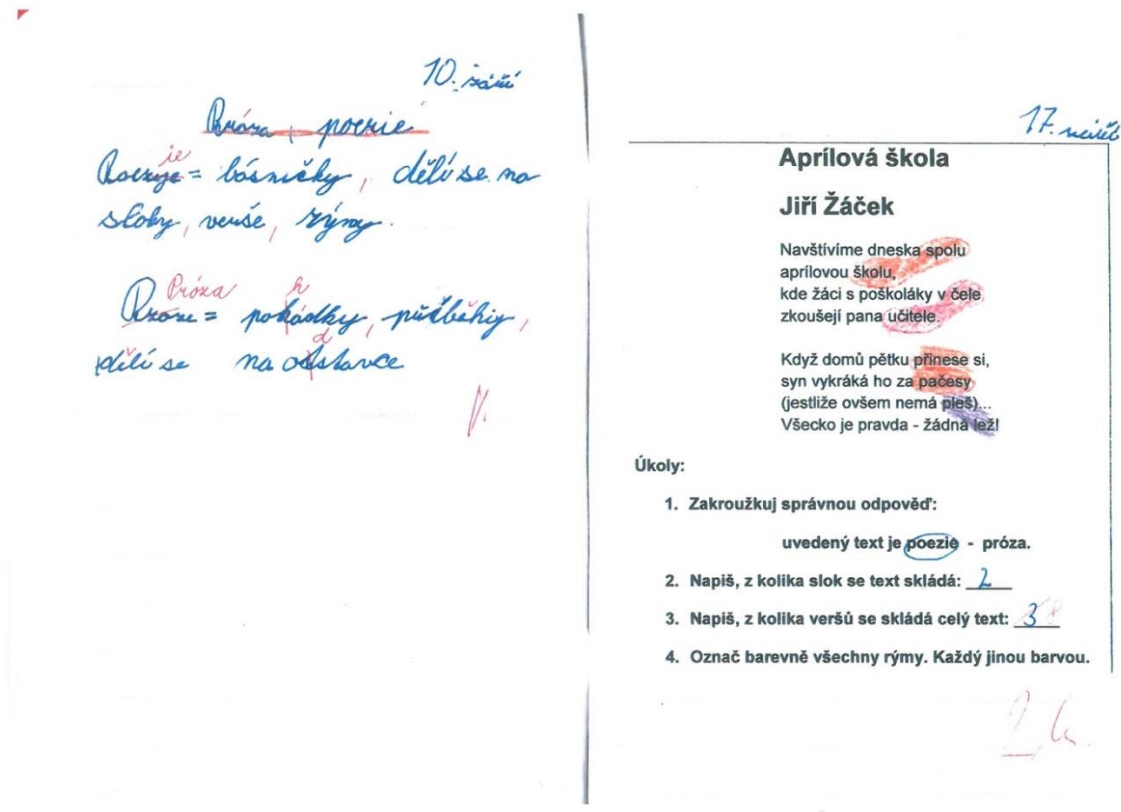 10. září
Próza, poezie
Poezije = básničky, dělí se na
ie
sloky, verše, rýmy.
Próza h
Proze = pokádky, příběhy,
d
dělí se na odstavce
17.
Aprílová škola
Jiří Žáček
Navštívíme dneska spolu
aprílovou školu,
kde žáci s poškoláky v čele
zkoušejí pana učitele.
Když domů pětku přinese si,
syn vykráká ho za pačesy
(jestliže ovšem nemá pleš)...
Všecko je pravda - žádná lež!
Úkoly:
1. Zakroužkuj správnou odpověď:
uvedený text je poezie - próza.
2. Napiš, z kolika slok se text skládá: 2
3. Napiš, z kolika veršů se skládá celý text: 3 8
4. Označ barevně všechny rýmy. Každý jinou barvou.